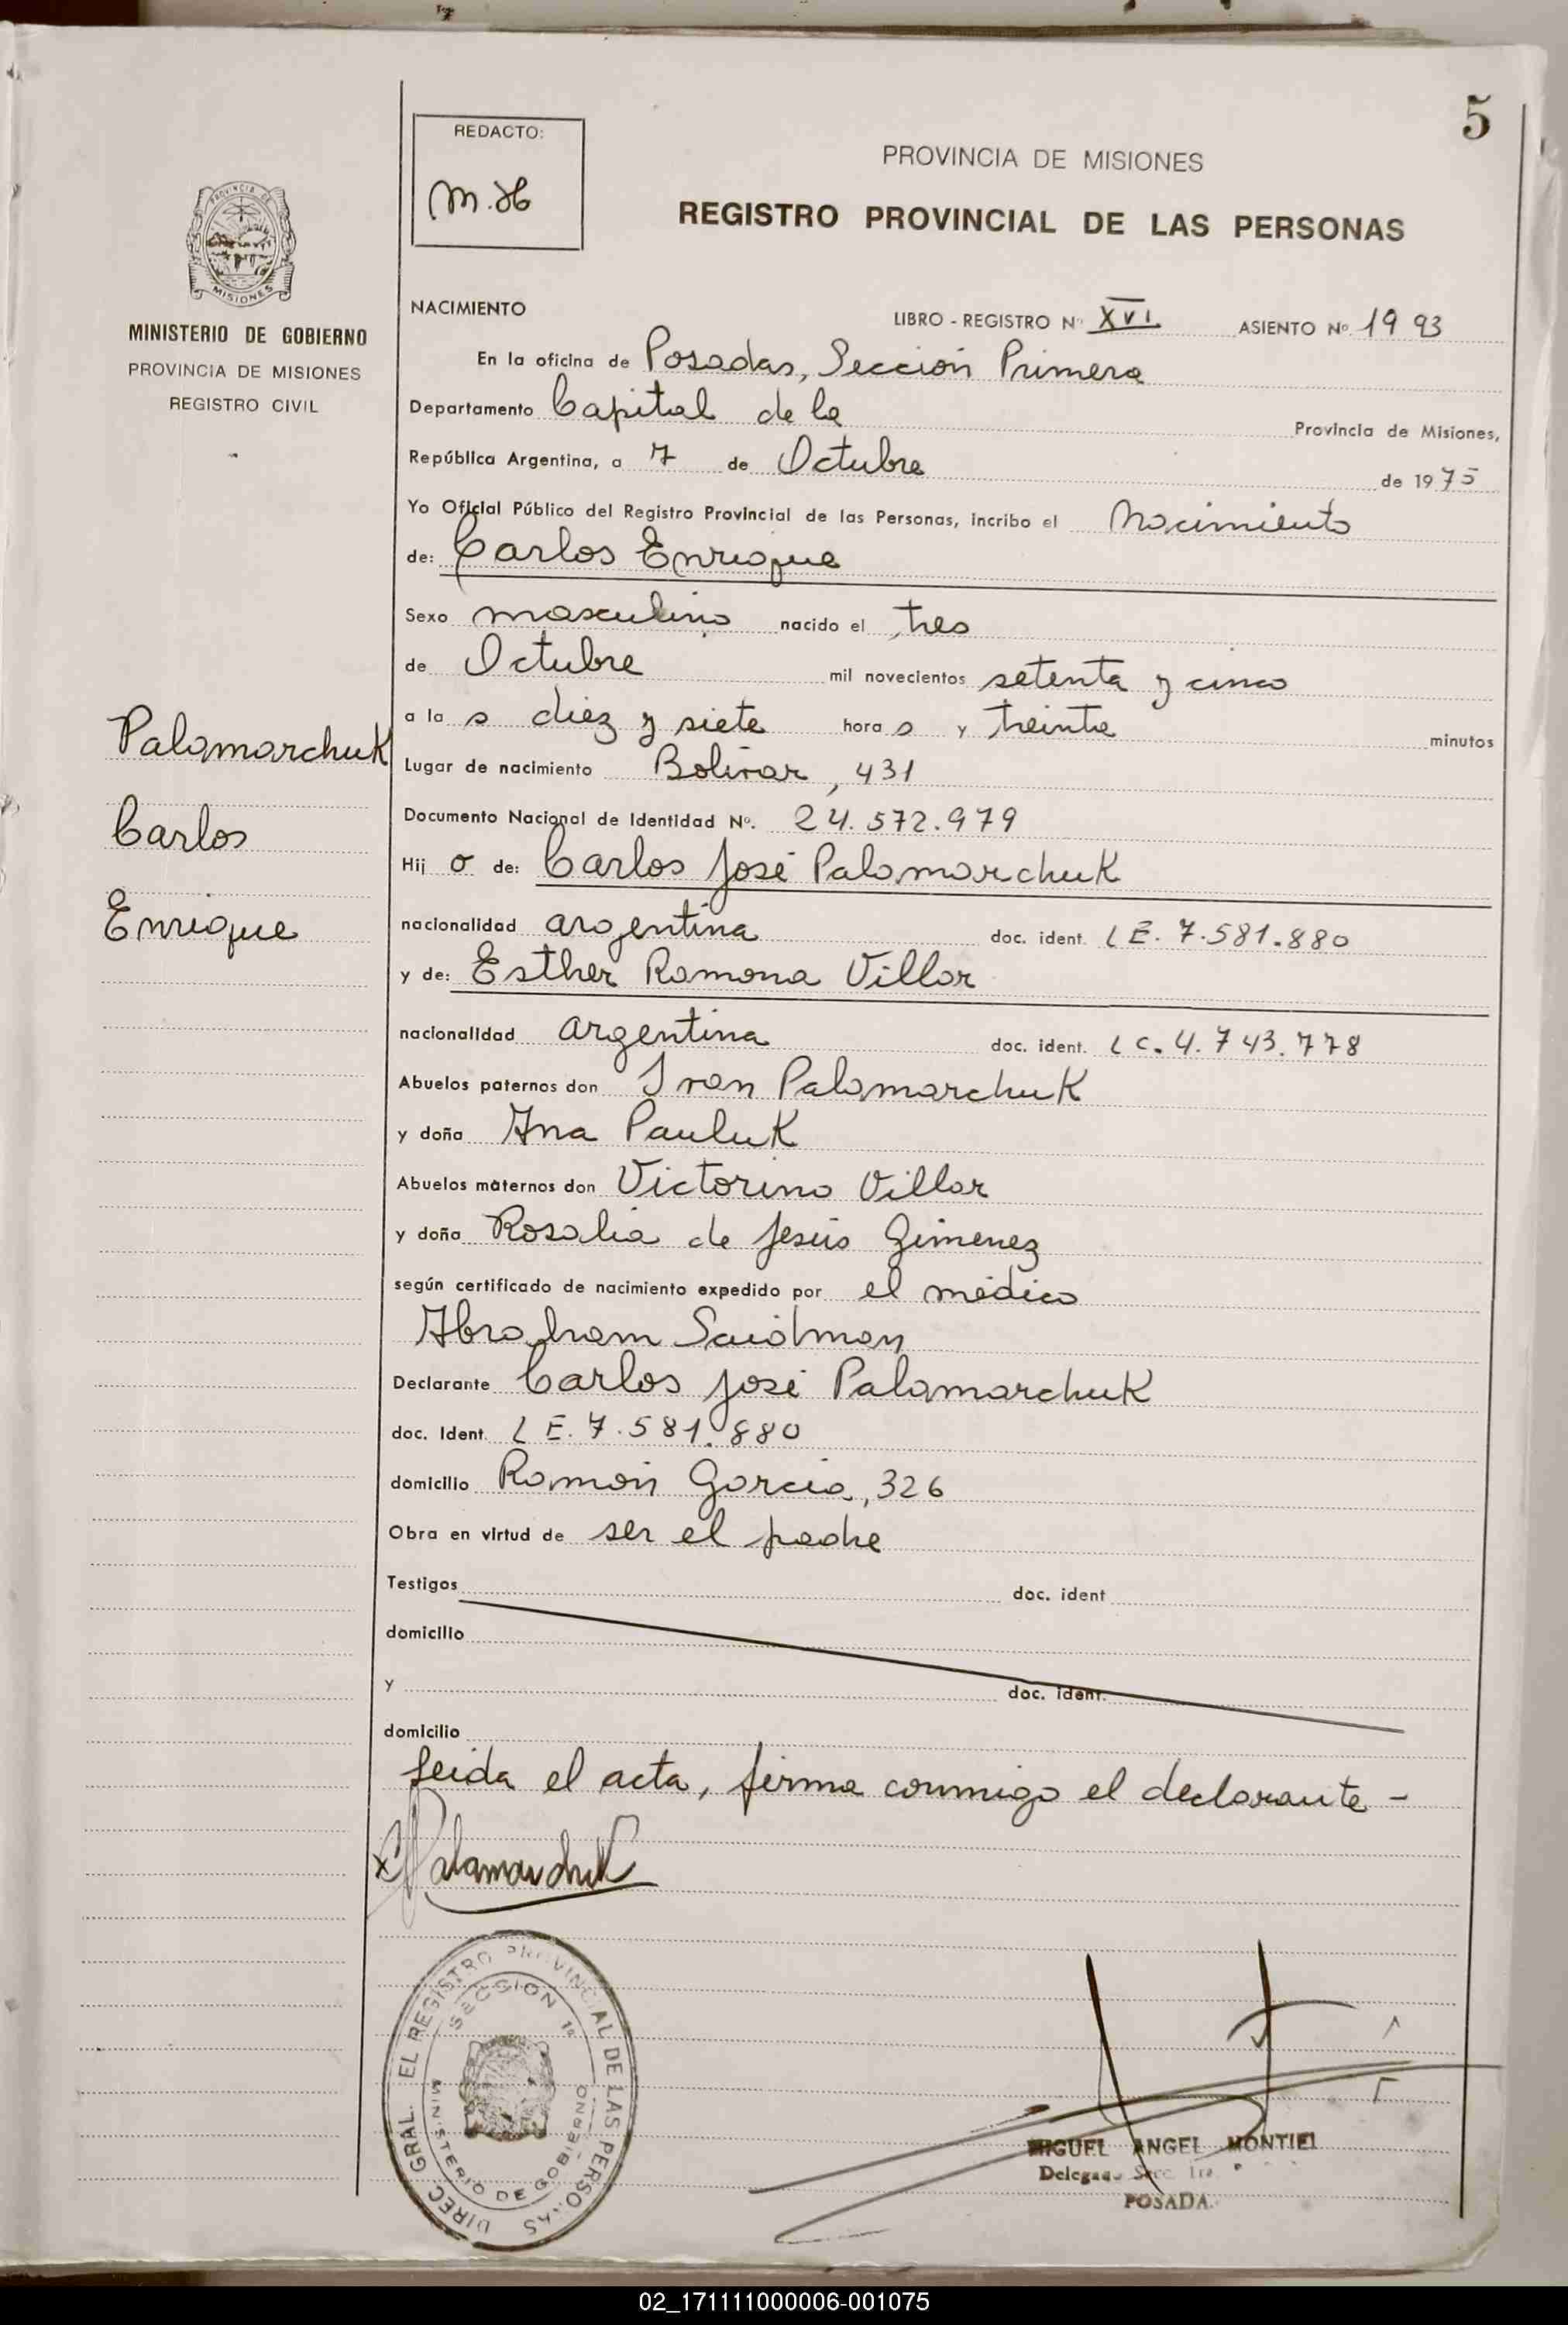 5
REDACTO:
M.H
PROVINCIA DE MISIONES
REGISTRO PROVINCIAL DE LAS PERSONAS
PROVINCIA DE
MISIONES
MINISTERIO DE GOBIERNO
PROVINCIA DE MISIONES
REGISTRO CIVIL
NACIMIENTO
LIBRO - REGISTRO Nº XVI ASIENTO Nº 1993
En la oficina de Posadas, Sección Primera
Departamento Capital de la Provincia de Misiones,
República Argentina, a 7 de Octubre de 1975
Yo Oficial Público del Registro Provincial de las Personas, incribo el Nacimiento
de: Carlos Enrique
Sexo masculino nacido el tres
de Octubre mil novecientos setenta y cinco
a la s diez y siete hora s y treinta minutos
Lugar de nacimiento Bolívar, 431
Documento Nacional de Identidad Nº. 24.572.979
Hij o de: Carlos José Palamarchuk
nacionalidad argentina doc. ident. LE. 7.581.880
y de: Esther Ramona Villar
nacionalidad argentina doc. ident. LC. 4.743.778
Abuelos paternos don Ivan Palamarchuk
y doña Ana Pauluk
Abuelos maternos don Victorino Villar
y doña Rosalia de Jesús Gimenez
según certificado de nacimiento expedido por el médico
Abraham Saidman
Declarante Carlos José Palamarchuk
doc. Ident. LE. 7.581.880
domicilio Ramón García, 326
Obra en virtud de ser el padre
Testigos doc. ident
domicilio
y doc. ident.
domicilio
Leida el acta, firma conmigo el declarante -
Palamarchuk
Carlos
Enrique
x CJPalamarchuk
DIREC. GRAL. EL REGISTRO PROVINCIAL DE LAS PERSONAS
SECCION 1ª
MINISTERIO DE GOBIERNO
MIGUEL ANGEL MONTIEL
Delegado Secc. 1ra.
POSADA
02_171111000006-001075